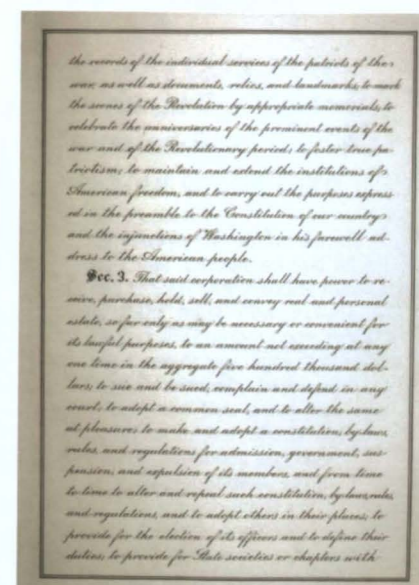 the records of the individual services of the patriots of the
war, as well as documents, relics, and landmarks; to mark
the scenes of the Revolution by appropriate memorials; to
celebrate the anniversaries of the prominent events of the
war and of the Revolutionary period; to foster true pa-
triotism; to maintain and extend the institutions of
American freedom, and to carry out the purposes express-
ed in the preamble to the Constitution of our country
and the injunctions of Washington in his farewell ad-
dress to the American people.
Sec. 3. That said corporation shall have power to re-
ceive, purchase, hold, sell, and convey real and personal
estate, so far only as may be necessary or convenient for
its lawful purposes, to an amount not exceeding at any
one time in the aggregate five hundred thousand dol-
lars; to sue and be sued, complain and defend in any
court; to adopt a common seal, and to alter the same
at pleasure; to make and adopt a constitution, by-laws,
rules, and regulations for admission, government, sus-
pension, and expulsion of its members, and from time
to time to alter and repeal such constitution, by-laws, rules,
and regulations, and to adopt others in their places; to
provide for the election of its officers and to define their
duties; to provide for State societies or chapters with